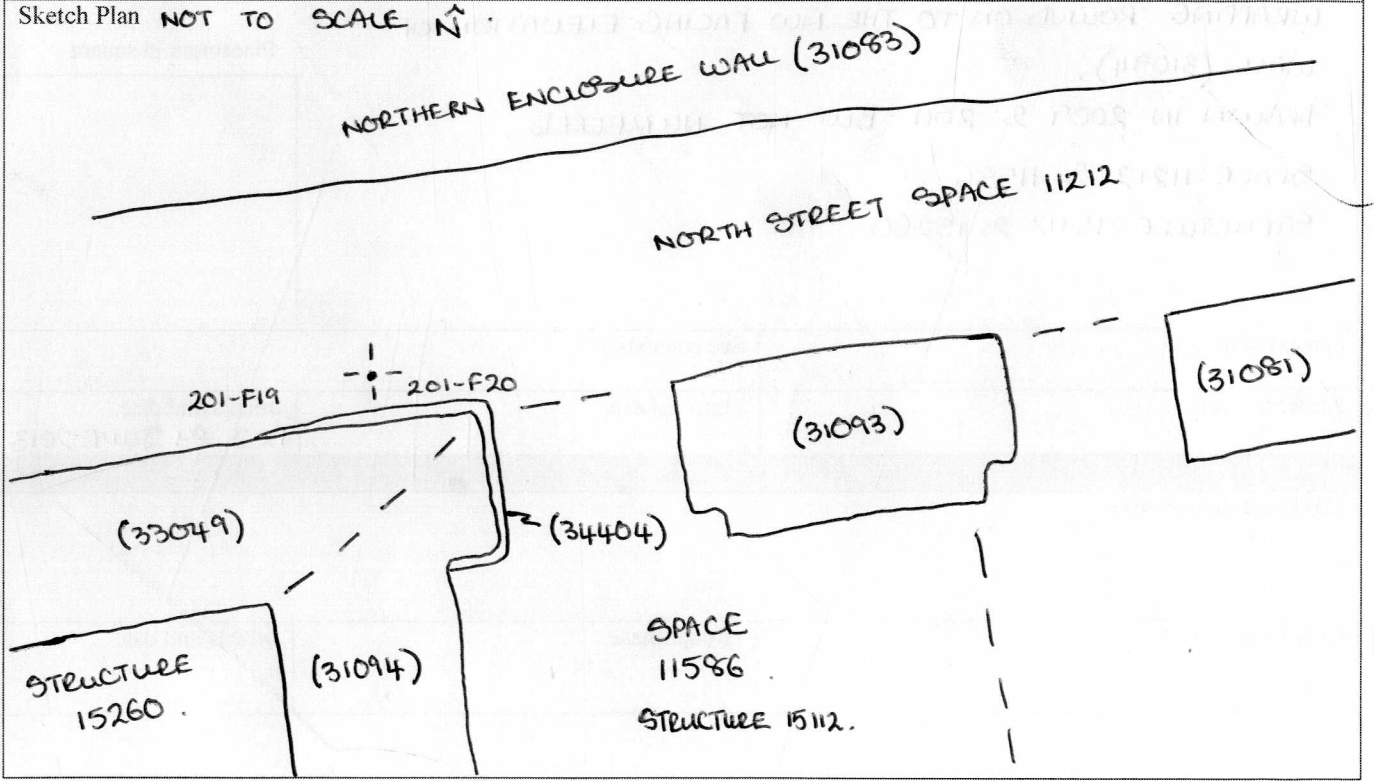 Sketch Plan NOT TO SCALE N
NORTHERN ENCLOSURE WALL (31083)
NORTH STREET SPACE 11212
(31081)
201-F19
201-F20
(31093)
(33049)
(34404)
STRUCTURE
15260.
(31094)
SPACE
11586.
STRUCTURE 15112.